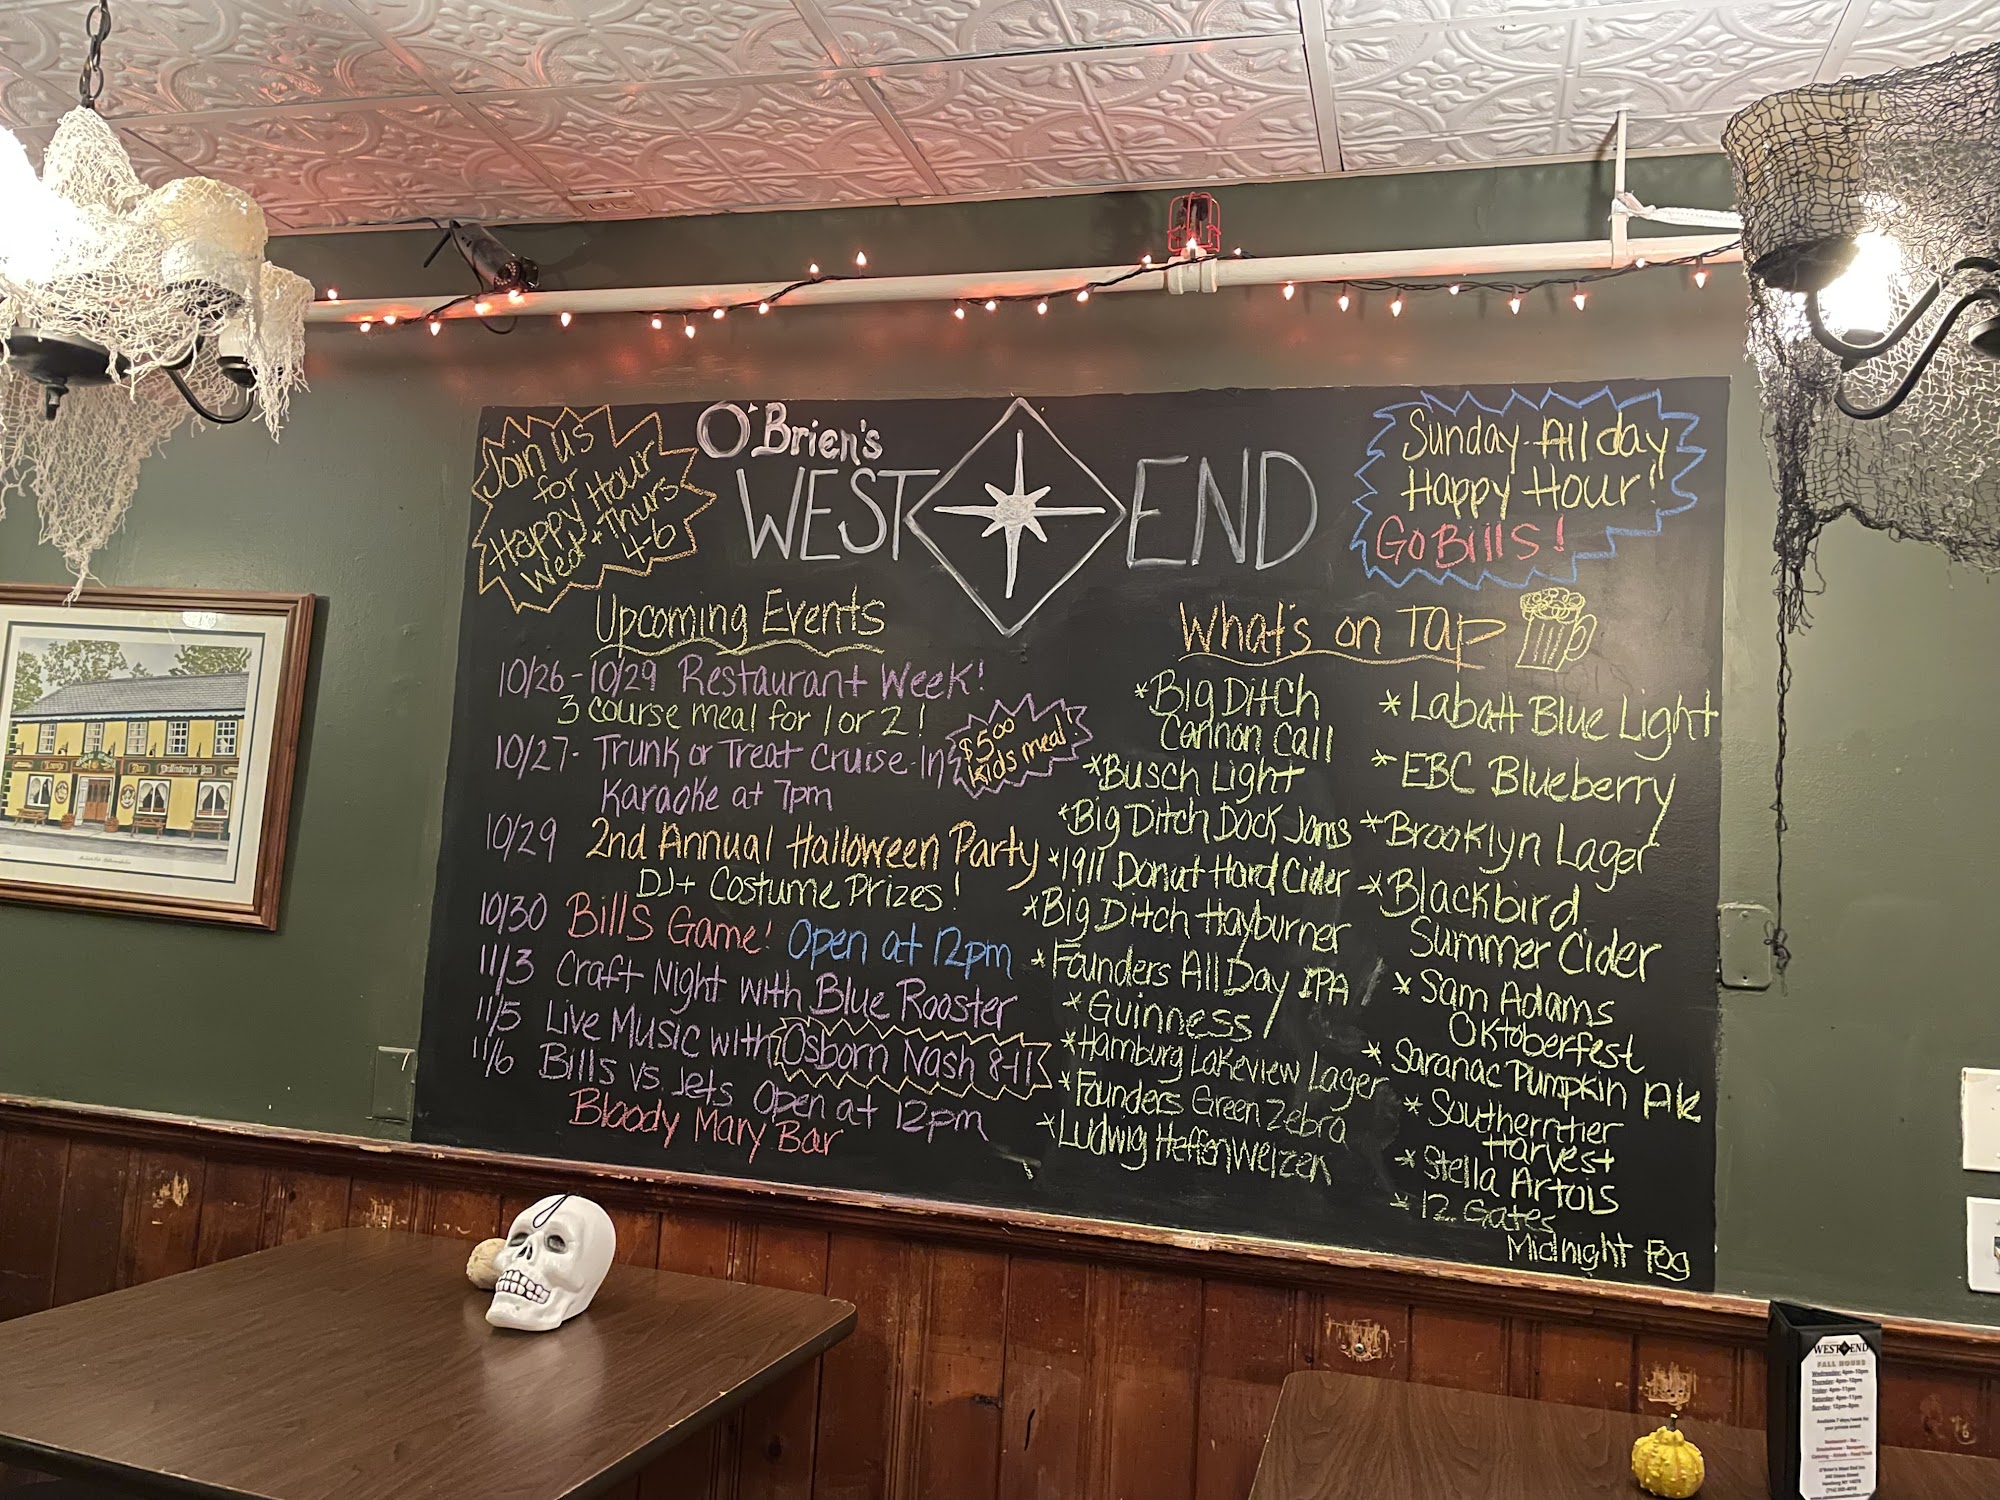 Join us
for
Happy Hour
Wed + Thurs
4-6
O'Brien's
WEST END
Sunday-All day
Happy Hour!
Go Bills!
Upcoming Events
10/26-10/29 Restaurant Week!
3 course meal for 1 or 2!
10/27- Trunk or Treat Cruise-In
$5.00
kids meal!
Karaoke at 7pm
10/29 2nd Annual Halloween Party
DJ + Costume Prizes!
10/30 Bills Game! Open at 12pm
11/3 Craft Night with Blue Rooster
11/5 Live Music with Osborn Nash 8-11
11/6 Bills vs. Jets Open at 12pm
Bloody Mary Bar
What's on Tap
*Big Ditch
Cannon Call
*Busch Light
*Big Ditch Dock Jams
*1911 Donut Hard Cider
*Big Ditch Hayburner
*Founders All Day IPA
*Guinness
*Hamburg Lakeview Lager
*Founders Green Zebra
*Ludwig Heffenweizen
*Labatt Blue Light
*EBC Blueberry
*Brooklyn Lager
*Blackbird
Summer Cider
*Sam Adams
Oktoberfest
*Saranac Pumpkin Ale
*Southerntier
Harvest
*Stella Artois
*12 Gates
Midnight Fog
WEST END
FALL HOURS
Wednesday: 4pm-10pm
Thursday: 4pm-10pm
Friday: 4pm-11pm
Saturday: 4pm-11pm
Sunday: 12pm-8pm
Available 7 days/week for
your private event